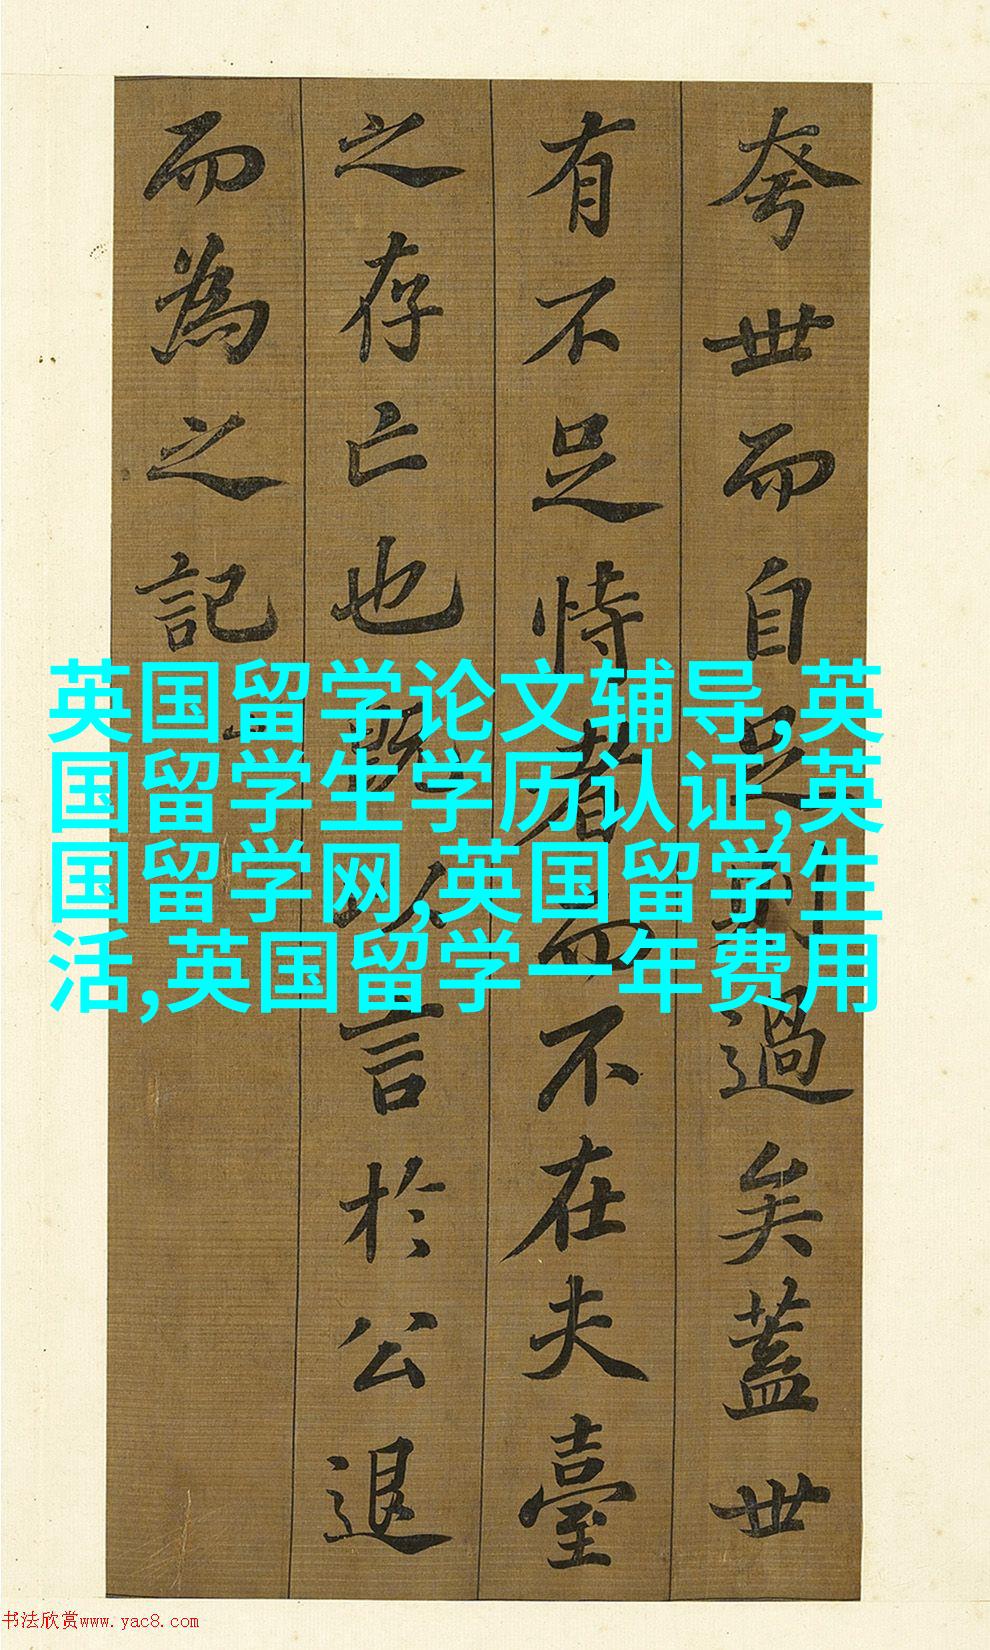 夸世而自足則過矣蓋世
有不足恃者而不在夫臺
之存亡也既以言於公退
而為之記
英国留学论文辅导,英
国留学生学历认证,英
国留学网,英国留学生
活,英国留学一年费用
书法欣赏www.yac8.com